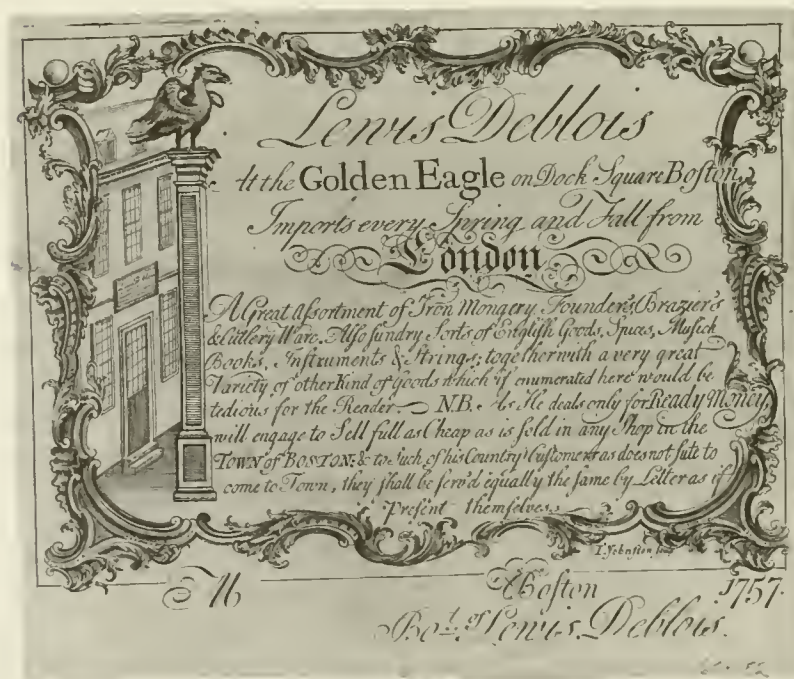 Lewis Deblois
At the Golden Eagle on Dock Square Boſton,
Imports every Spring and Fall from
London
A Great Aſsortment of Iron Mongery, Founder's, Brazier's
& Cutlery Ware. Alſo ſundry Sorts of Engliſh Goods, Spices, Muſick
Books, Inſtruments & Strings, together with a very great
Variety of other Kind of Goods which if enumerated here would be
tedious for the Reader. N.B. As He deals only for Ready Money,
will engage to Sell full as Cheap as is ſold in any Shop in the
TOWN of BOSTON: & to ſuch of his Country Cuſtomers as does not ſute to
come to Town, they ſhall be ſerv'd equally the ſame by Letter as if
Preſent themſelves.
I. Johnſton
M
Boſton 1757.
Bot. of Lewis Deblois.